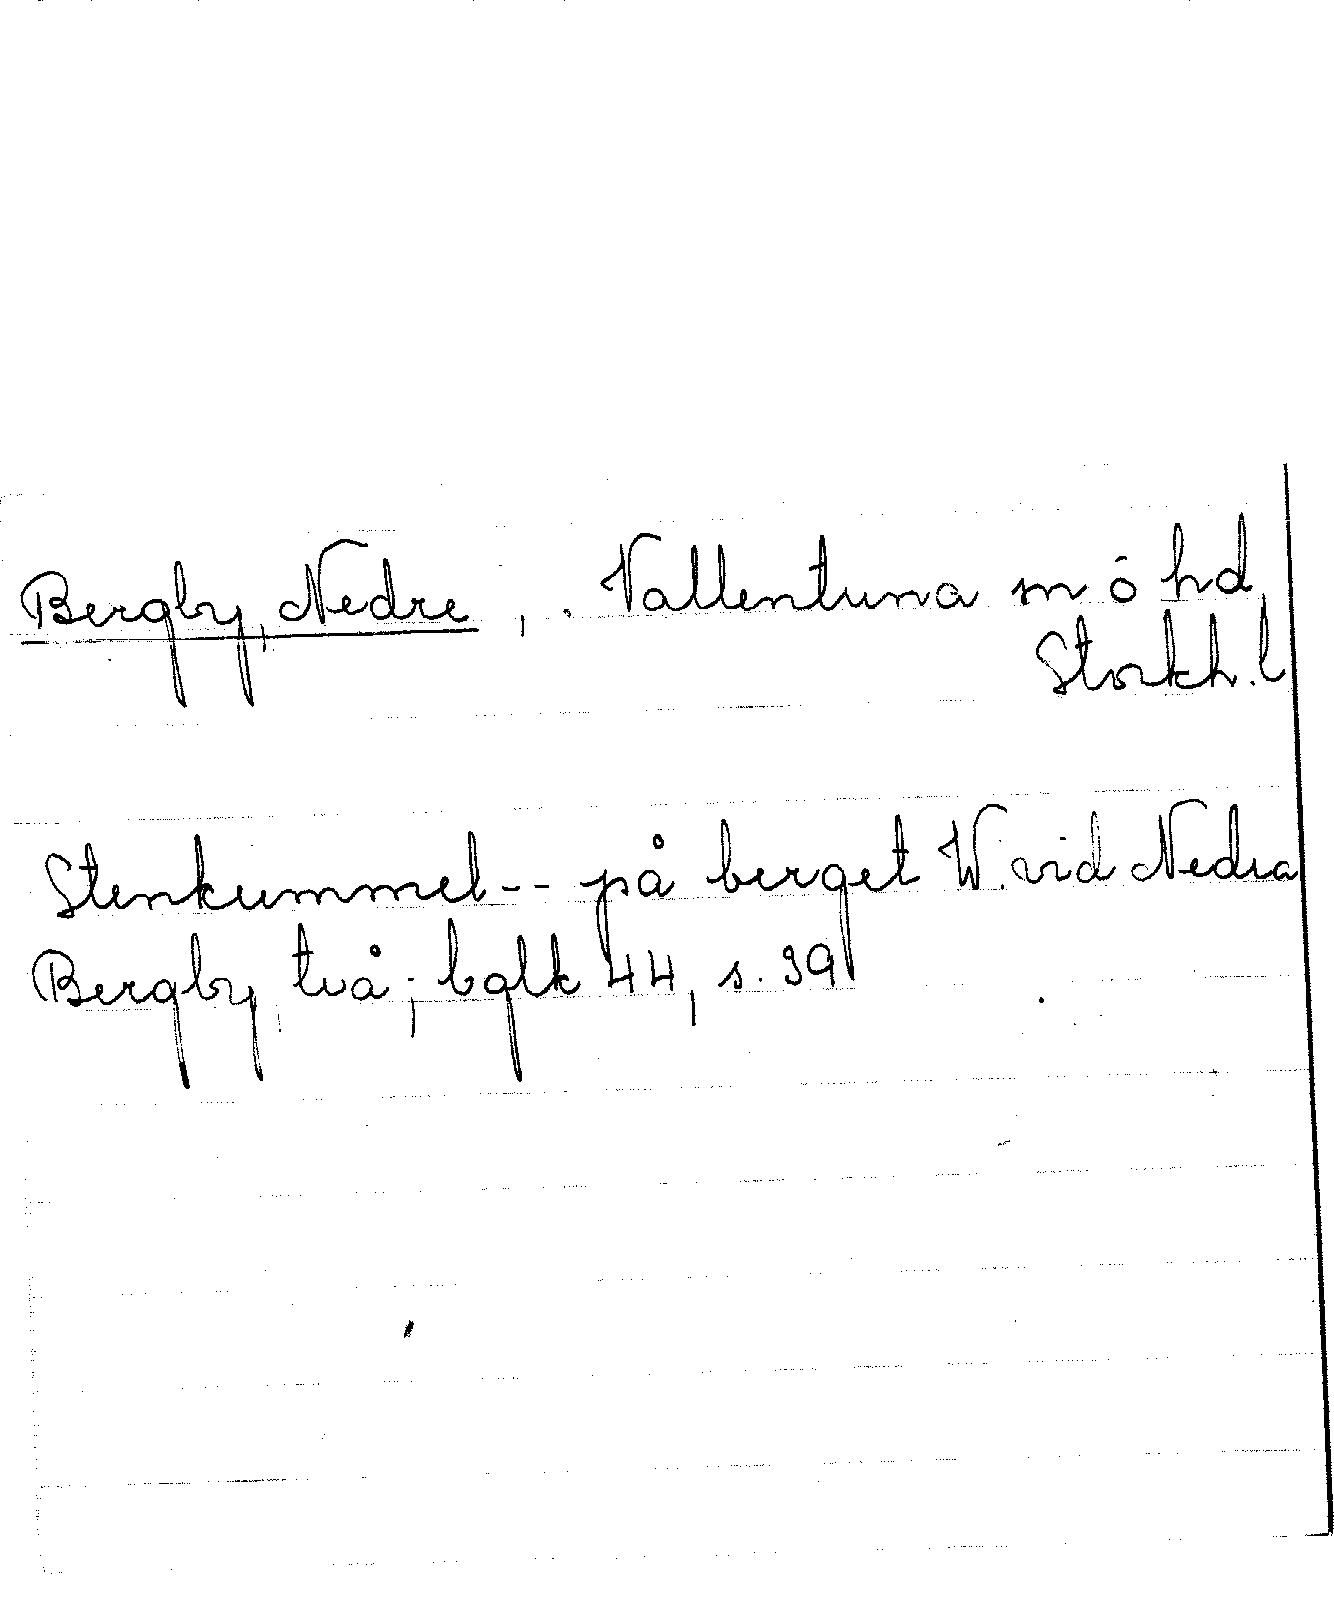 Bergby, Nedre, . Vallentuna sn ō hd,
Stockh. l
Stenkummel-- på berget W. vid Nedra
Bergby, två; bglk 44, s. 39